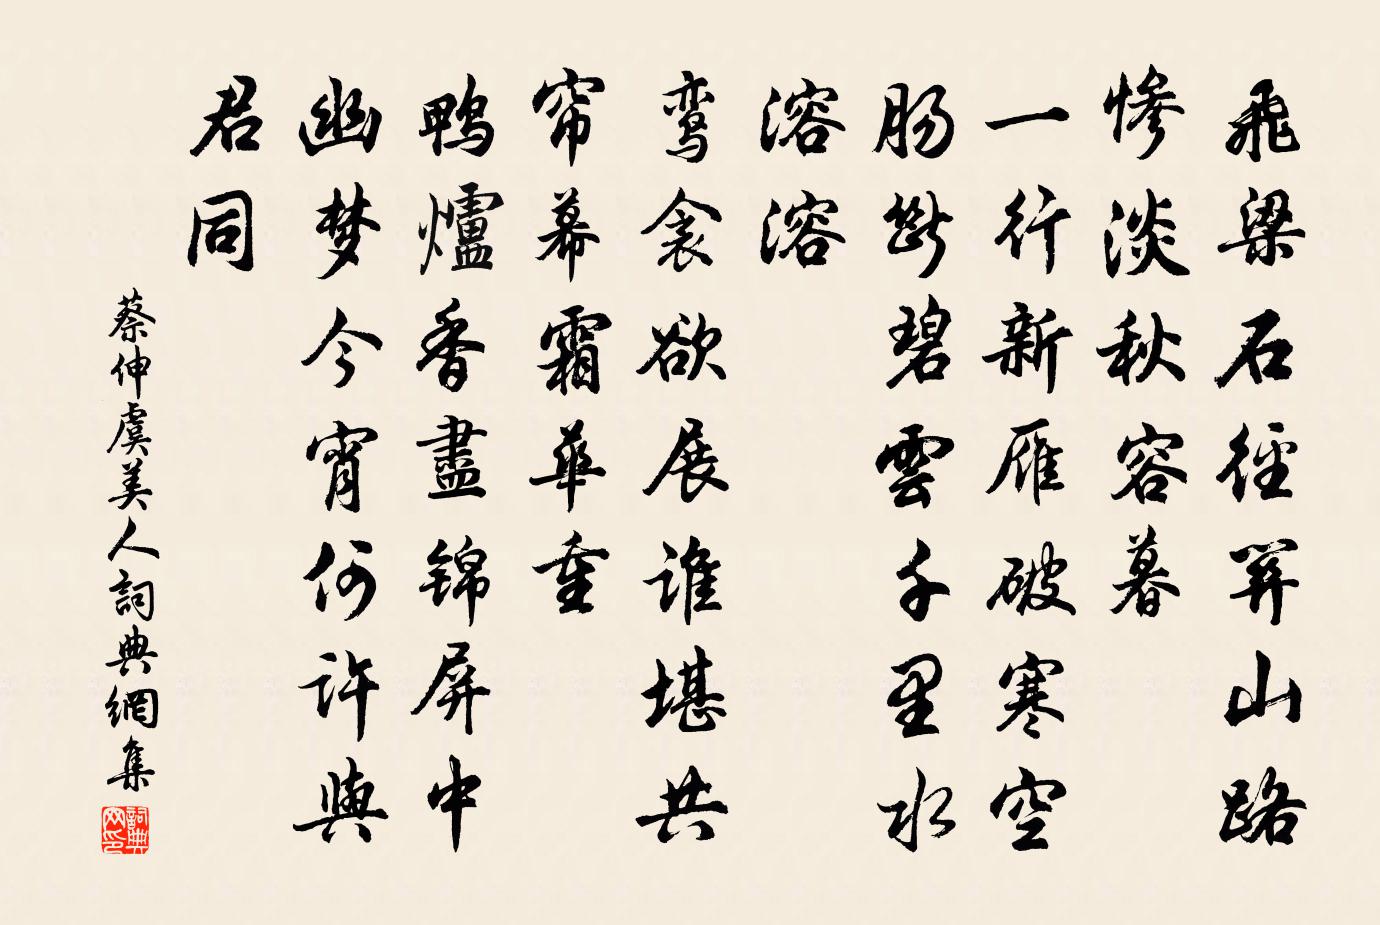 飛梁石徑關山路
慘淡秋容暮
一行新雁破寒空
腸斷碧雲千里水
溶溶
鸾衾欲展谁堪共
帘幕霜華重
鴨爐香盡锦屏中
幽梦今宵何許與
君同
蔡伸虞美人詞典網集
詞典网印